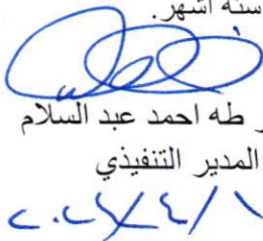 ستة أشهر.
طه احمد عبد السلام
المدير التنفيذي